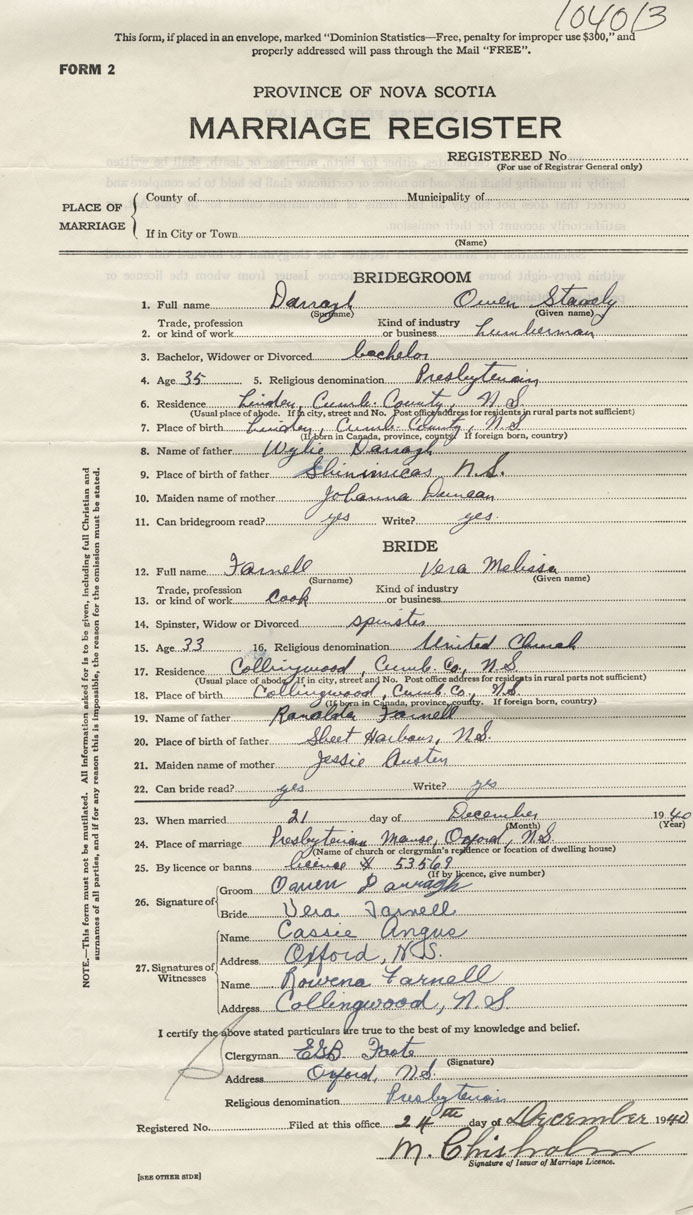 104013
This form, if placed in an envelope, marked "Dominion Statistics—Free, penalty for improper use $300," and
properly addressed will pass through the Mail "FREE".
FORM 2
PROVINCE OF NOVA SCOTIA
MARRIAGE REGISTER
REGISTERED No.
(For use of Registrar General only)
PLACE OF MARRIAGE
County of Municipality of
If in City or Town
(Name)
BRIDEGROOM
1. Full name Darragh Owen Stavely
(Surname) (Given name)
2. Trade, profession or kind of work Kind of industry or business Lumberman
3. Bachelor, Widower or Divorced bachelor
4. Age 35 5. Religious denomination Presbyterian
6. Residence Linden, Cumb. County, N.S.
(Usual place of abode. If in city, street and No. Post office address for residents in rural parts not sufficient)
7. Place of birth Linden, Cumb. County, N.S.
(If born in Canada, province, county. If foreign born, country)
8. Name of father Wylie Darragh
9. Place of birth of father Shinimicas N.S.
10. Maiden name of mother Johanna Duncan
11. Can bridegroom read? yes Write? yes.
BRIDE
12. Full name Farnell Vera Melissa
(Surname) (Given name)
13. Trade, profession or kind of work Cook Kind of industry or business
14. Spinster, Widow or Divorced spinster
15. Age 33 16. Religious denomination United Church
17. Residence Collingwood, Cumb. Co., N.S.
(Usual place of abode. If in city, street and No. Post office address for residents in rural parts not sufficient)
18. Place of birth Collingwood, Cumb. Co., N.S.
(If born in Canada, province, county. If foreign born, country)
19. Name of father Farnell
20. Place of birth of father Sheet Harbour, N.S.
21. Maiden name of mother Jessie Austen
22. Can bride read? yes Write? yes
23. When married 21 day of December 1940
(Month) (Year)
24. Place of marriage Presbyterian Manse, Oxford, N.S.
(Name of church or clergyman's residence or location of dwelling house)
25. By licence or banns license # 53569
(If by licence, give number)
26. Signature of
Groom Owen Darragh
Bride Vera Farnell
27. Signatures of Witnesses
Name Cassie Angus
Address Oxford, N.S.
Name Rowena Farnell
Address Collingwood, N.S.
I certify the above stated particulars are true to the best of my knowledge and belief.
Clergyman EGB Foote
(Signature)
Address Oxford, N.S.
Religious denomination Presbyterian
Registered No. Filed at this office 24th day of December 1940
M. Chisholm
Signature of Issuer of Marriage Licence.
[SEE OTHER SIDE]
NOTE.—This form must not be mutilated. All information asked for is to be given, including full Christian and
surnames of all parties, and if for any reason this is impossible, the reason for the omission must be stated.